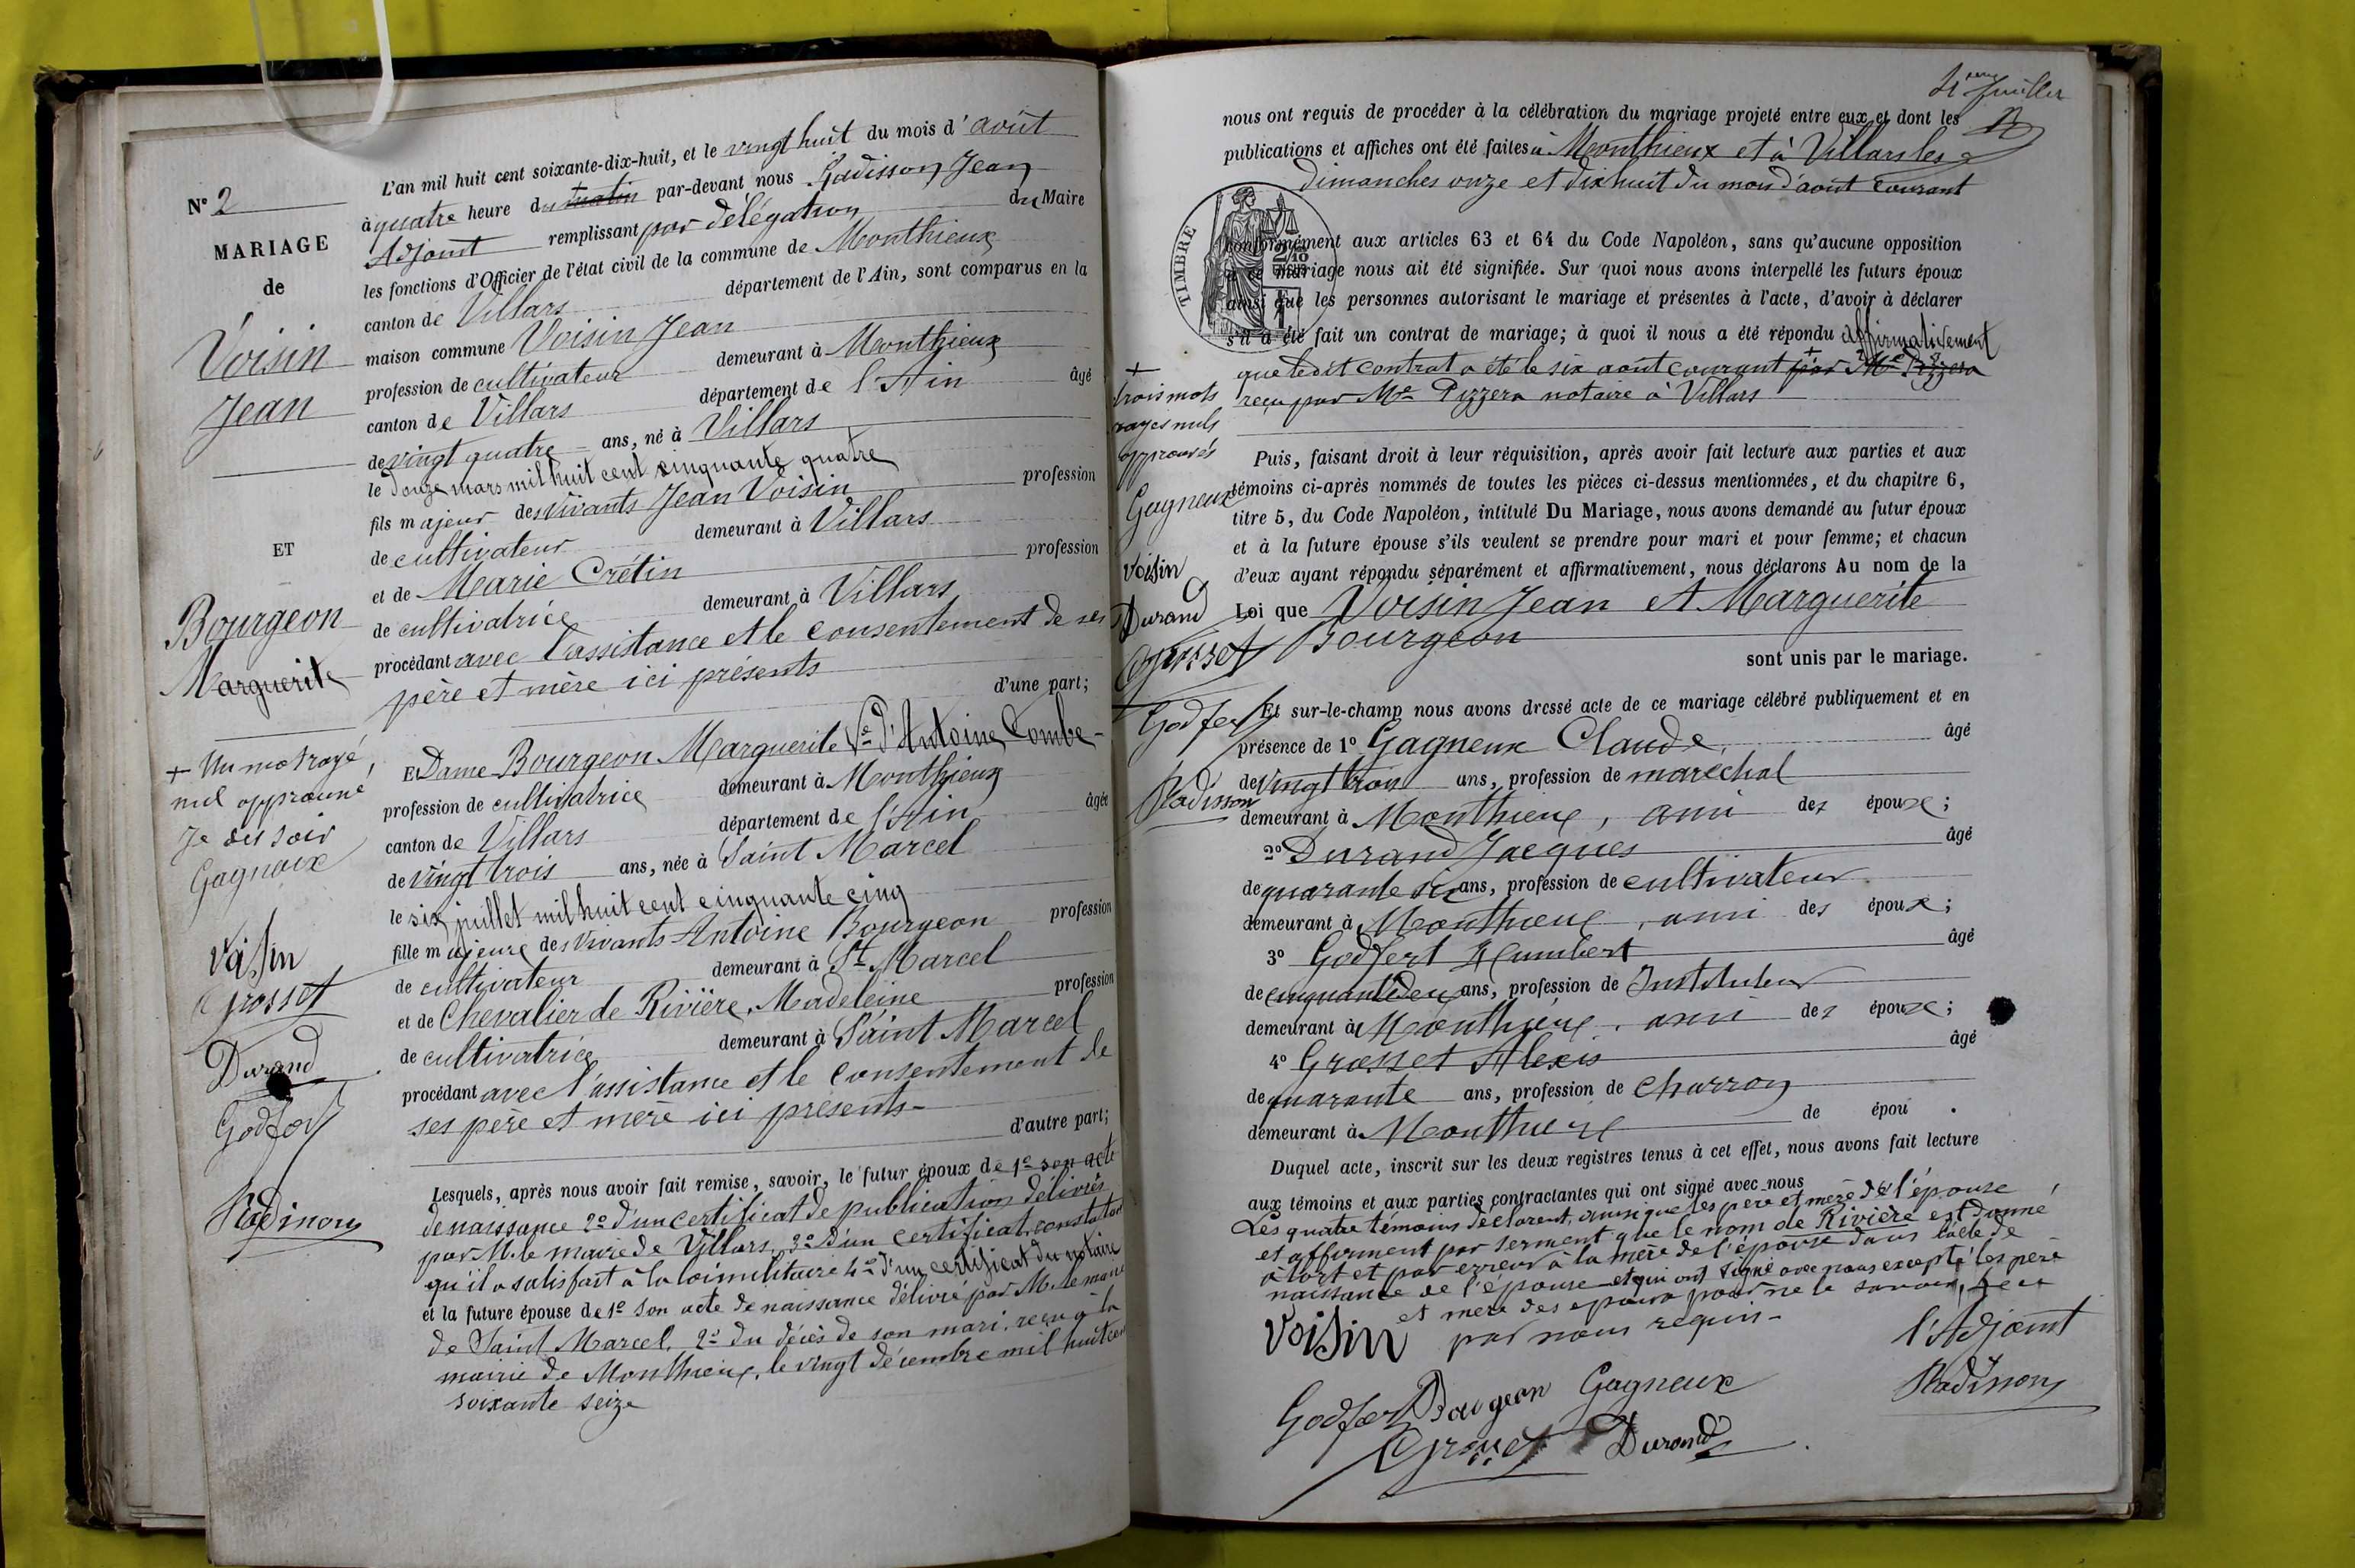 N° 2
MARIAGE
de
Voisin
Jean
ET
Bourgeon
Marguerite
+ Un mot rayé,
nul approuvé
Je dis soir
Gagneux
Voisin
Grosset
Durand
Godfert
Radisson
L'an mil huit cent soixante-dix-huit, et le vingt huit du mois d'août
à quatre heure du matin par-devant nous Radisson Jean
Adjoint remplissant par délégation du Maire
les fonctions d'Officier de l'état civil de la commune de Monthieux
canton de Villars département de l'Ain, sont comparus en la
maison commune Voisin Jean
profession de cultivateur demeurant à Monthieux
canton de Villars département de l'Ain âgé
de vingt quatre ans, né à Villars
le douze mars mil huit cent cinquante quatre
fils majeur des vivants Jean Voisin profession
de cultivateur demeurant à Villars
et de Marie Crétin profession
de cultivatrice demeurant à Villars
procédant avec l'assistance et le consentement de ses
père et mère ici présents
d'une part;
Et Dame Bourgeon Marguerite Ve d'Antoine Combe
profession de cultivatrice demeurant à Monthieux
canton de Villars département de l'Ain âgée
de vingt trois ans, née à Saint Marcel
le six juillet mil huit cent cinquante cinq
fille majeure des vivants Antoine Bourgeon profession
de cultivateur demeurant à St Marcel
et de Chevalier de Rivière, Madeleine profession
de cultivatrice demeurant à Saint Marcel
procédant avec l'assistance et le consentement de
ses père et mère ici présents
d'autre part;
Lesquels, après nous avoir fait remise, savoir, le futur époux de 1° son acte
de naissance 2° d'un certificat de publication délivrés
par M. le maire de Villars 3° d'un certificat constatant
qu'il a satisfait à la loi militaire 4° d'un certificat du notaire
et la future épouse de 1° son acte de naissance délivré par M. le maire
de Saint Marcel, 2° du décès de son mari, reçu à la
mairie de Monthieux, le vingt décembre mil huit cent
soixante seize
nous ont requis de procéder à la célébration du mariage projeté entre eux et dont les
publications et affiches ont été faites à Monthieux et à Villars les
dimanches onze et dix huit du mois d'août courant
TIMBRE
conformément aux articles 63 et 64 du Code Napoléon, sans qu'aucune opposition
à ce mariage nous ait été signifiée. Sur quoi nous avons interpellé les futurs époux
ainsi que les personnes autorisant le mariage et présentes à l'acte, d'avoir à déclarer
s'il a été fait un contrat de mariage; à quoi il nous a été répondu affirmativement
que ledit contrat a été le six août courant + par Me Pizzera
reçu par Me Pizzera notaire à Villars
+
trois mots
rayés nuls
approuvés
Gagneux
Voisin
Durand
Grosset
Godfert
Radisson
Puis, faisant droit à leur réquisition, après avoir fait lecture aux parties et aux
témoins ci-après nommés de toutes les pièces ci-dessus mentionnées, et du chapitre 6,
titre 5, du Code Napoléon, intitulé Du Mariage, nous avons demandé au futur époux
et à la future épouse s'ils veulent se prendre pour mari et pour femme; et chacun
d'eux ayant répondu séparément et affirmativement, nous déclarons Au nom de la
Loi que Voisin Jean et Marguerite
Bourgeon
sont unis par le mariage.
Et sur-le-champ nous avons dressé acte de ce mariage célébré publiquement et en
présence de 1° Gagneux Claude, âgé
de vingt trois ans, profession de maréchal
demeurant à Monthieux, ami des époux;
2° Durand Jacques âgé
de quarante six ans, profession de cultivateur
demeurant à Monthieux, ami des époux;
3° Godfert Humbert âgé
de cinquante deux ans, profession de Instituteur
demeurant à Monthieux, ami des époux;
4° Grosset Alexis âgé
de quarante ans, profession de charron
demeurant à Monthieux de épou .
Duquel acte, inscrit sur les deux registres tenus à cet effet, nous avons fait lecture
aux témoins et aux parties contractantes qui ont signé avec nous
Les quatre témoins déclarent, ainsi que les père et mère de l'épouse,
et affirment par serment que le nom de Rivière est donné
à tort et par erreur à la mère de l'épouse dans l'acte de
naissance de l'épouse et qui ont signé avec nous excepté les père
et mère des époux pour ne le savoir, de ce
par nous requis
Voisin
l'Adjoint
Radisson
Godfert Bourgeon Gagneux
Grosset Durand